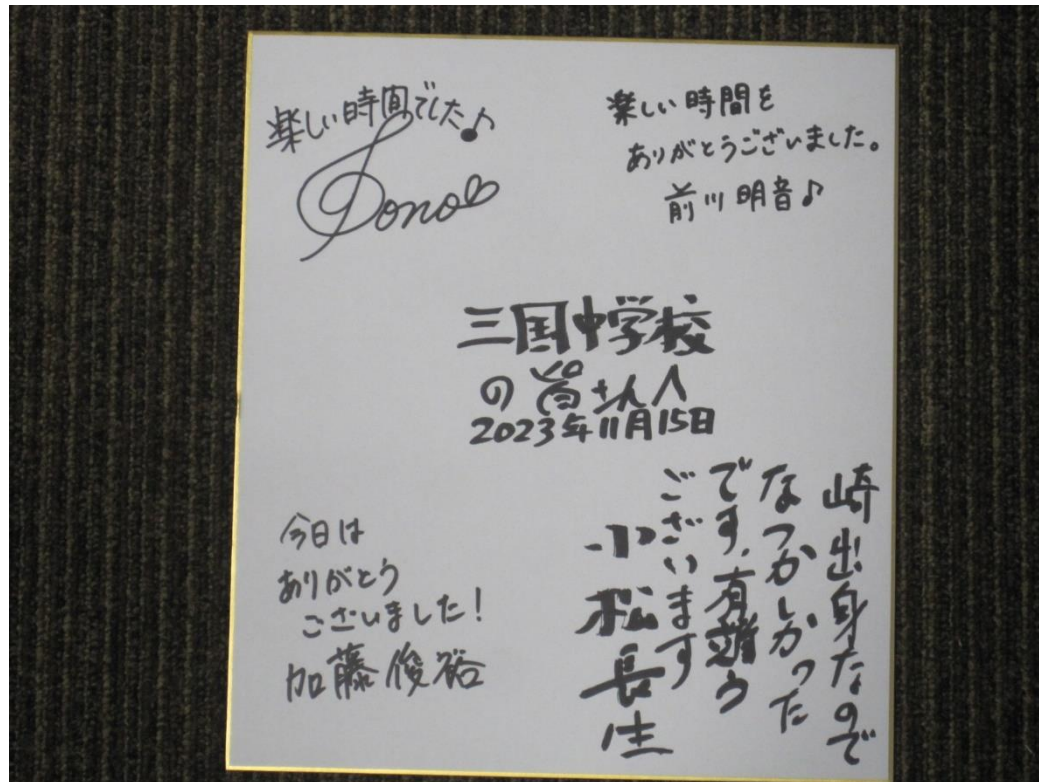 楽しい時間でした♪
Sono
楽しい時間を
ありがとうございました。
前川明音♪
三国中学校
の皆さんへ
2023年11月15日
今日は
ありがとう
ございました!
加藤俊裕
崎出身なので
なつかしかった
です.有難う
ございます
小松長生